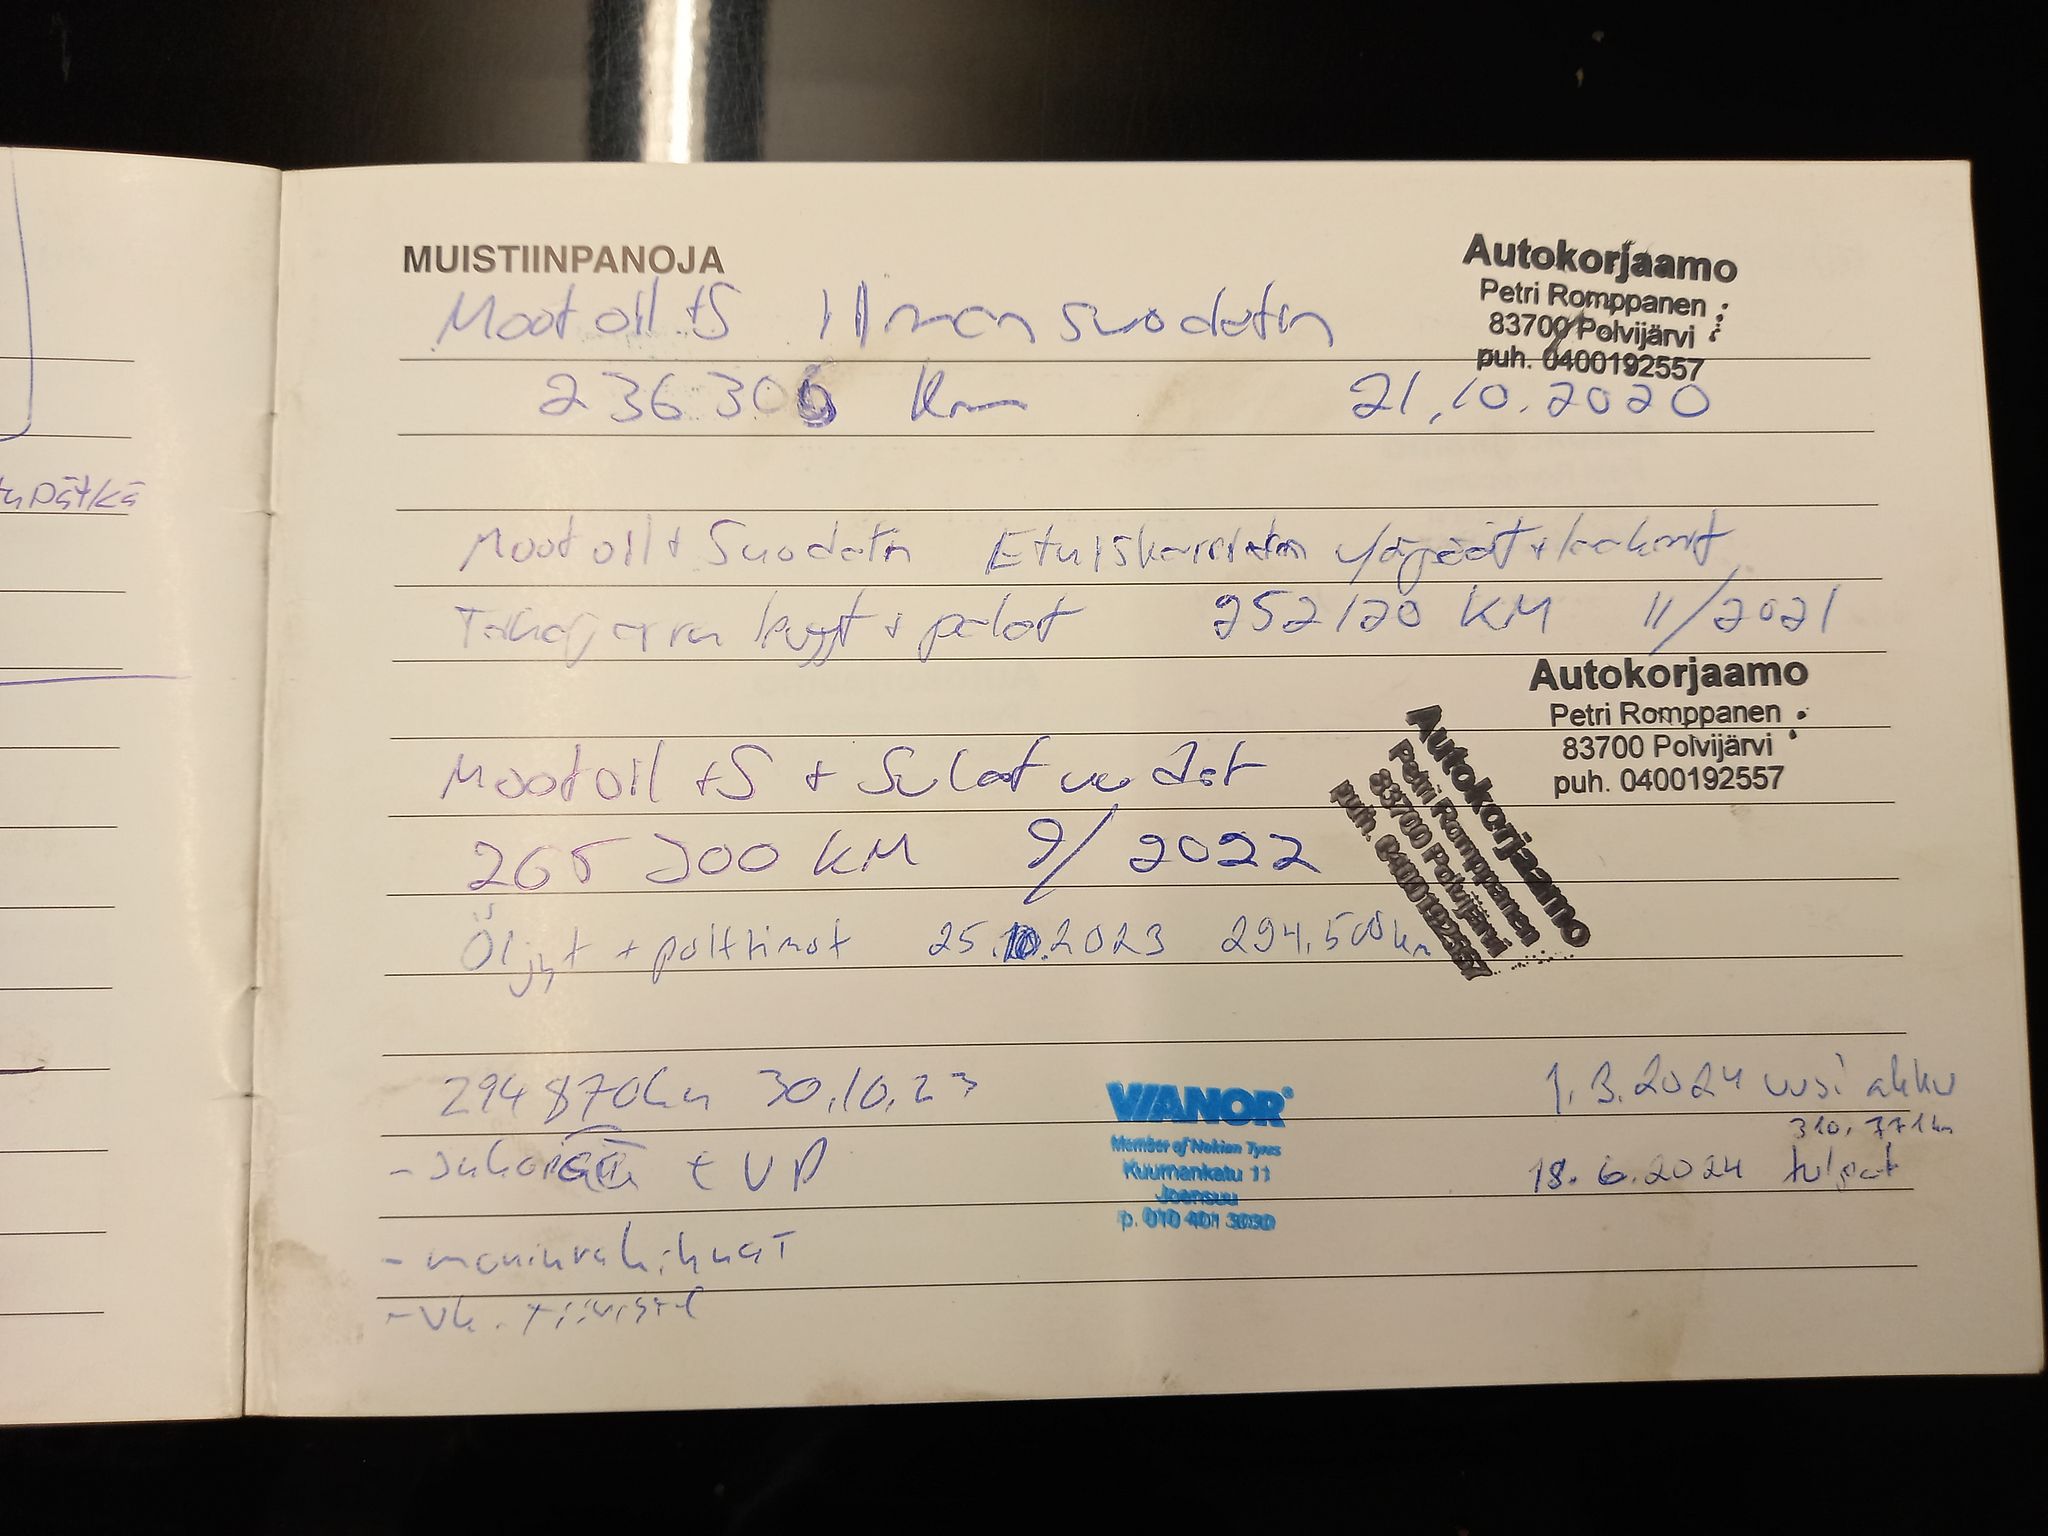 tupätkä
MUISTIINPANOJA
Autokorjaamo
Petri Romppanen
83700 Polvijärvi
puh. 0400192557
Moot oil +S Ilman suodatin
236306 Km 21.10.2020
Moot oil + Suodatin yläpäät + laakerit
palat 252120 KM 11/2021
Autokorjaamo
Petri Romppanen
83700 Polvijärvi
puh. 0400192557
Autokorjaamo
Petri Romppanen
83700 Polvijärvi
puh. 0400192557
Moot oil +S + Sulat uudet
KM 9/2022
Öljyt + polttimot 25.10.2023 294.500km
294870km 30.10.23
VIANOR
Member of Nokian Tyres
Kuurnankatu 11
Joensuu
p. 010 401 3030
1.3.2024 uusi akku
310.771km
+ VP
18.6.2024 tulpat